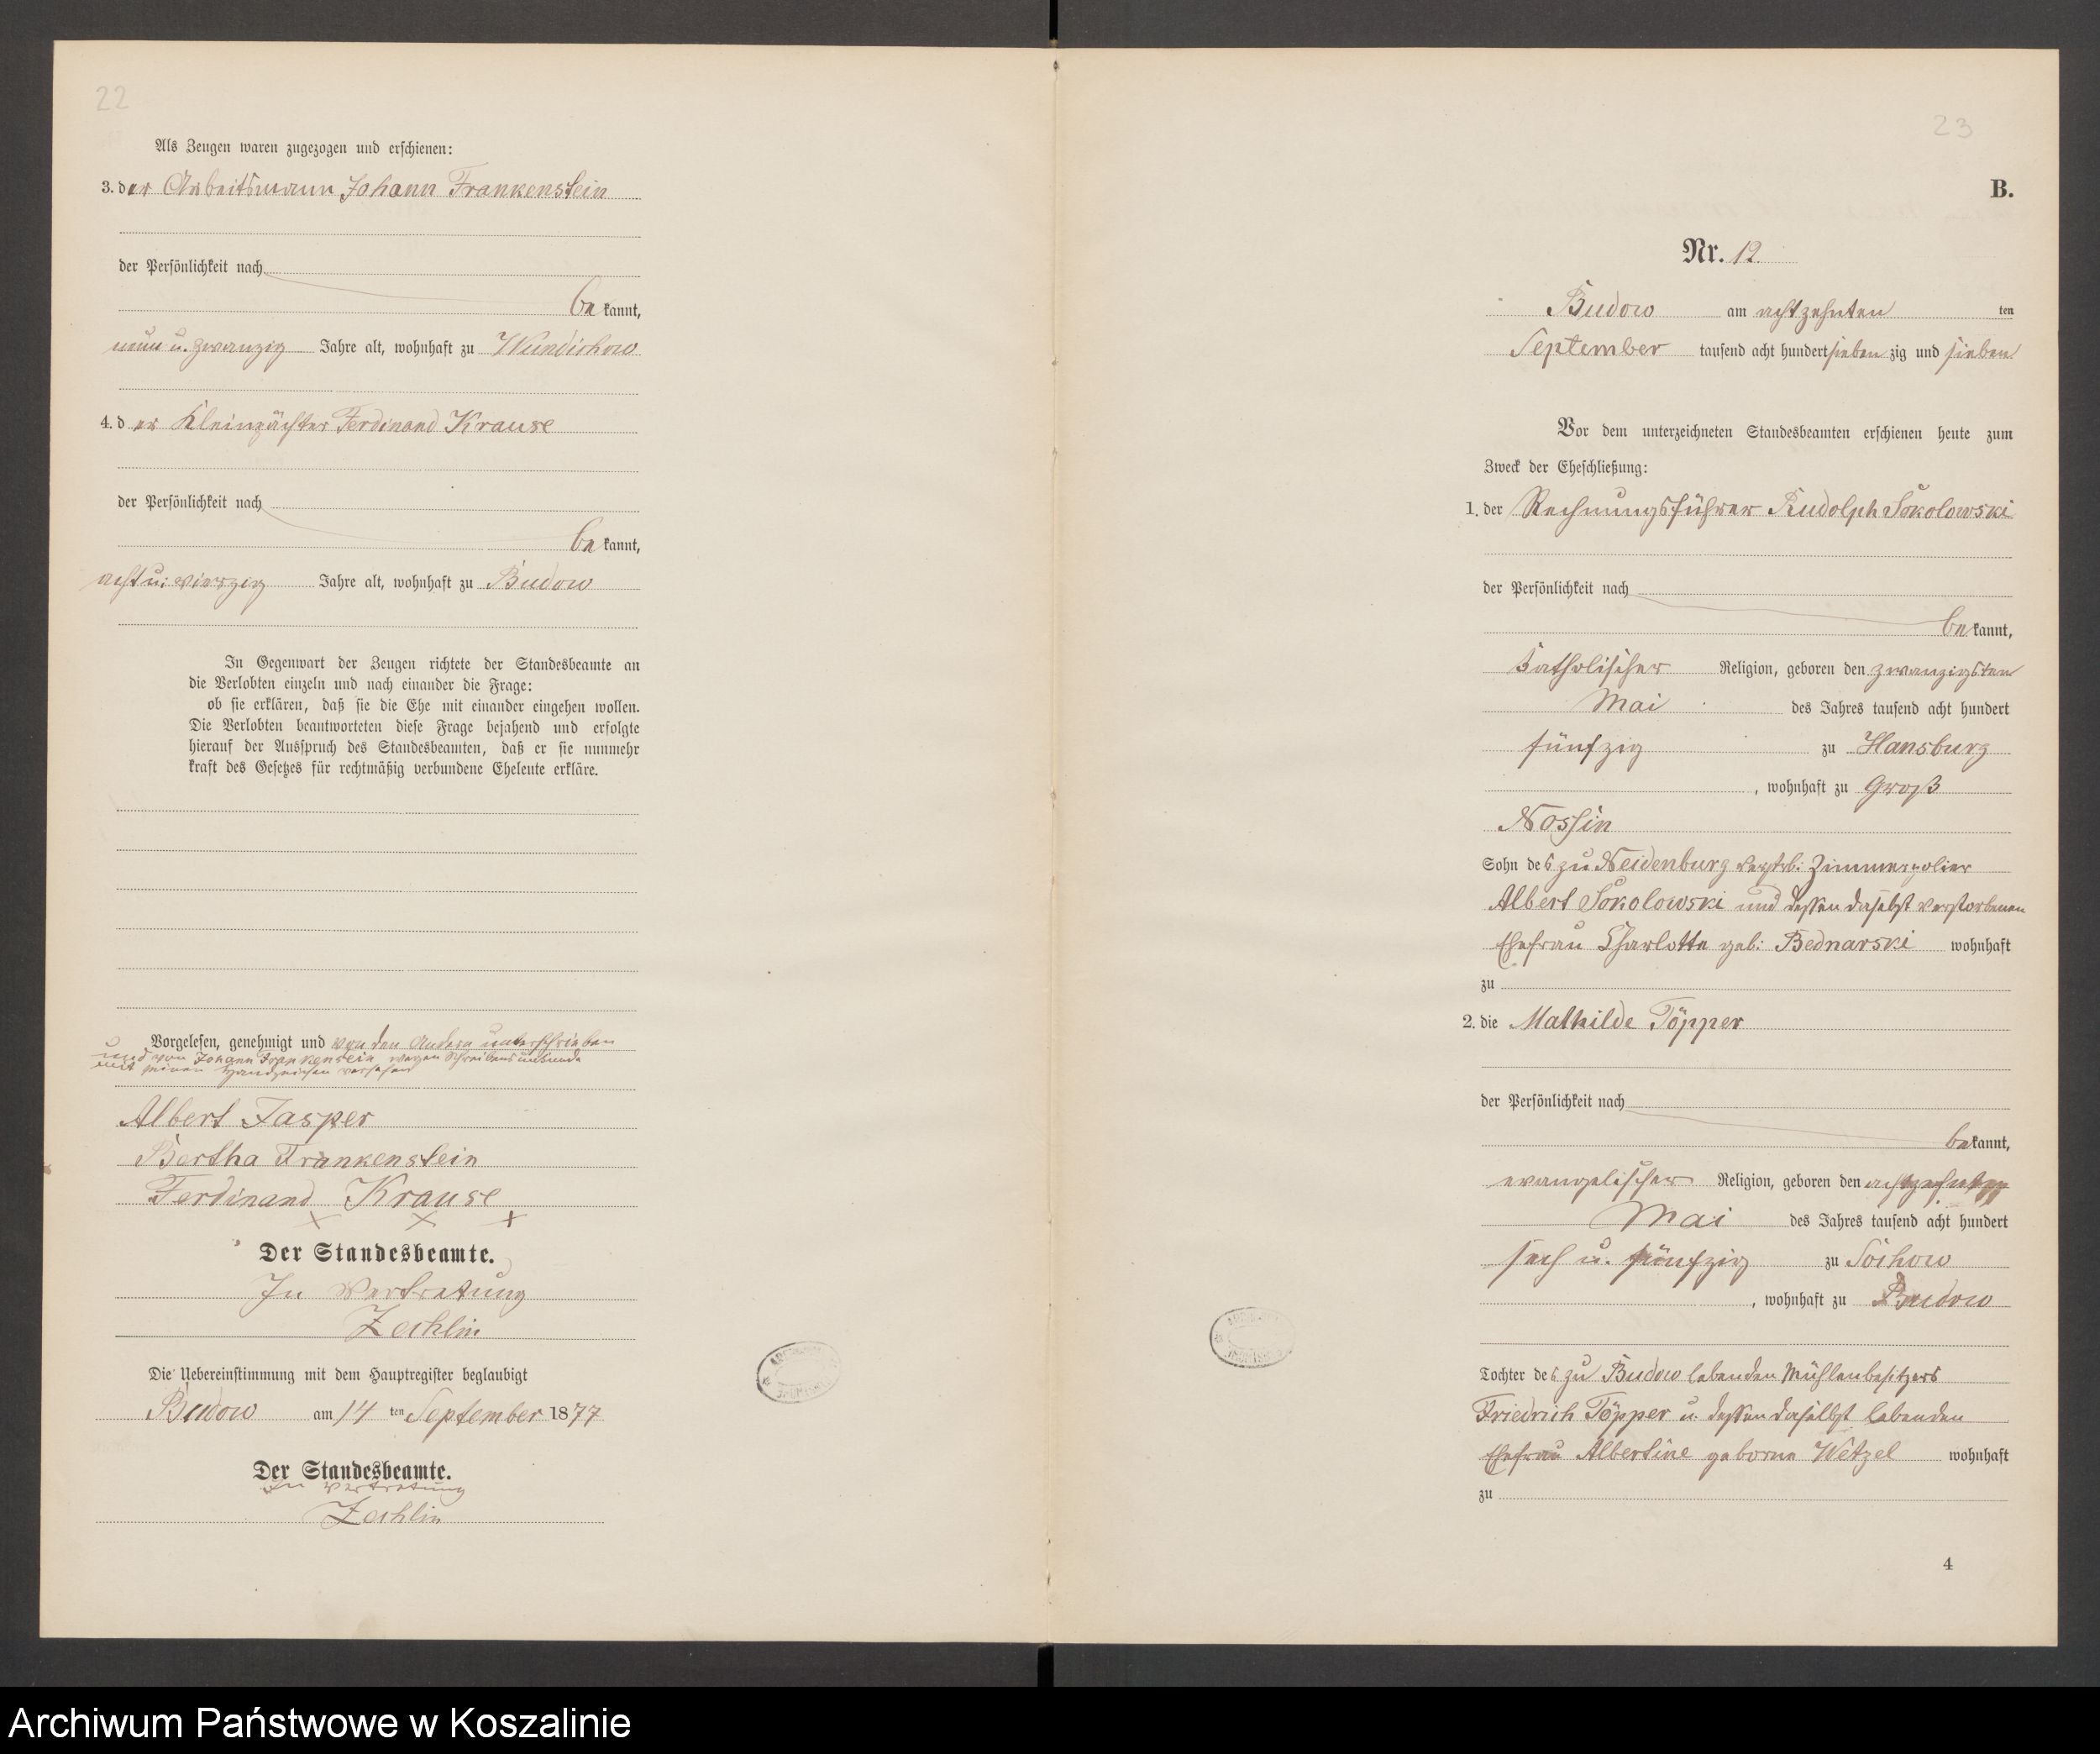 22
Als Zeugen waren zugezogen und erschienen:
3. der Arbeitsmann Johann Frankenstein
der Persönlichkeit nach
bekannt,
neun u. zwanzig Jahre alt, wohnhaft zu Wundichow
4. der Kleinpächter Ferdinand Krause
der Persönlichkeit nach
bekannt,
acht u. vierzig Jahre alt, wohnhaft zu Budow
In Gegenwart der Zeugen richtete der Standesbeamte an
die Verlobten einzeln und nach einander die Frage:
ob sie erklären, daß sie die Ehe mit einander eingehen wollen.
Die Verlobten beantworteten diese Frage bejahend und erfolgte
hierauf der Ausspruch des Standesbeamten, daß er sie nunmehr
kraft des Gesetzes für rechtmäßig verbundene Eheleute erkläre.
Vorgelesen, genehmigt und von den Andern unterschrieben
und von Johann Frankenstein wegen Schreibensunkunde
mit seinen Handzeichen versehen
Albert Jasper
Bertha Frankenstein
Ferdinand Krause
+ + +
Der Standesbeamte.
In Vertretung
Zechlin
Die Uebereinstimmung mit dem Hauptregister beglaubigt
Budow am 14 ten September 1877
Der Standesbeamte.
In Vertretung
Zechlin
23
B.
Nr. 12.
Budow am achtzehnten ten
September tausend acht hundert sieben zig und sieben
Vor dem unterzeichneten Standesbeamten erschienen heute zum
Zweck der Eheschließung:
1. der Rechnungsführer Rudolph Sokolowski
der Persönlichkeit nach
bekannt,
katholischer Religion, geboren den zwanzigsten
Mai des Jahres tausend acht hundert
fünfzig zu Hansburg
, wohnhaft zu Groß
Nossin
Sohn des zu Neidenburg verstrb: Zimmerpolier
Albert Sokolowski und dessen daselbst verstorbenen
Ehefrau Charlotte geb: Bednarski wohnhaft
zu
2. die Mathilde Töpper
der Persönlichkeit nach
bekannt,
evangelischer Religion, geboren den achtzehnten
Mai des Jahres tausend acht hundert
sech u. fünfzig zu Sochow
, wohnhaft zu Budow
Tochter des zu Budow lebenden Mühlenbesitzers
Friedrich Töpper u. dessen daselbst lebenden
Ehefrau Albertine geborne Wetzel wohnhaft
zu
4
Archiwum Państwowe w Koszalinie